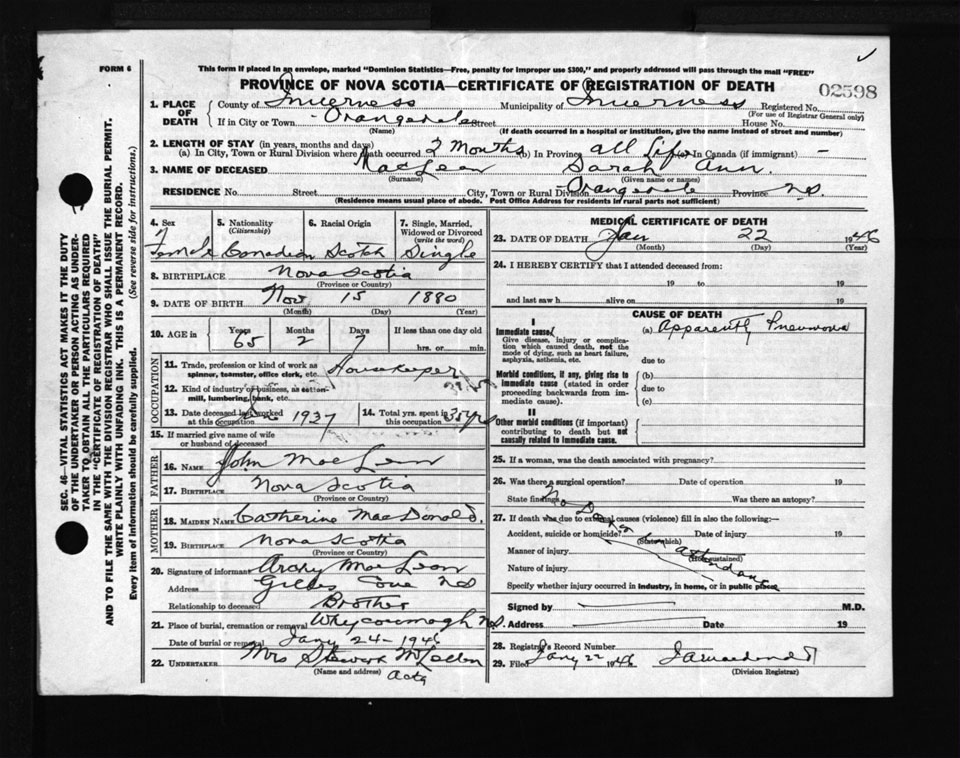 FORM 6
This form if placed in an envelope, marked "Dominion Statistics—Free, penalty for improper use $300," and properly addressed will pass through the mail "FREE"
PROVINCE OF NOVA SCOTIA—CERTIFICATE OF REGISTRATION OF DEATH
02598
1. PLACE OF DEATH
County of Inverness Municipality of Inverness Registered No.
(For use of Registrar General only)
If in City or Town Orangedale Street House No.
(Name) (If death occurred in a hospital or institution, give the name instead of street and number)
2. LENGTH OF STAY (in years, months and days)
(a) In City, Town or Rural Division where death occurred 2 Months (b) In Province all Life (c) In Canada (if immigrant) –
3. NAME OF DECEASED MacLean Sarah Ann.
(Surname) (Given name or names)
RESIDENCE No. Street City, Town or Rural Division Orangedale Province NS.
(Residence means usual place of abode. Post Office Address for residents in rural parts not sufficient)
4. Sex 5. Nationality (Citizenship) 6. Racial Origin 7. Single, Married, Widowed or Divorced (write the word)
Female Canadian Scotch Single
8. BIRTHPLACE Nova Scotia
(Province or Country)
9. DATE OF BIRTH Nov 15 1880
(Month) (Day) (Year)
10. AGE in Years Months Days If less than one day old
65 2 7 hrs. or min.
OCCUPATION
11. Trade, profession or kind of work as spinner, teamster, office clerk, etc. Housekeeper
12. Kind of industry or business, as cotton-mill, lumbering, bank, etc.
13. Date deceased last worked at this occupation 1937 14. Total yrs. spent in this occupation 35 yrs
15. If married give name of wife or husband of deceased
FATHER
16. NAME John MacLean
17. BIRTHPLACE Nova Scotia
(Province or Country)
MOTHER
18. MAIDEN NAME Catherine MacDonald.
19. BIRTHPLACE Nova Scotia
(Province or Country)
20. Signature of informant Archy MacLean
Address Cove NS
Relationship to deceased Brother
21. Place of burial, cremation or removal Whycocomagh NS.
Date of burial or removal Jany 24-1946
22. UNDERTAKER Mrs
(Name and address)
MEDICAL CERTIFICATE OF DEATH
23. DATE OF DEATH Jan 22 1946
(Month) (Day) (Year)
24. I HEREBY CERTIFY that I attended deceased from:
19 to 19
and last saw h alive on 19
CAUSE OF DEATH
I
Immediate cause (a) Apparently Pneumonia
Give disease, injury or complication which caused death, not the mode of dying, such as heart failure, asphyxia, asthenia, etc.
due to
Morbid conditions, if any, giving rise to immediate cause (stated in order proceeding backwards from immediate cause).
(b)
due to
(c)
II
Other morbid conditions (if important) contributing to death but not causally related to immediate cause.
25. If a woman, was the death associated with pregnancy?
26. Was there a surgical operation? Date of operation 19
State findings Was there an autopsy?
27. If death was due to external causes (violence) fill in also the following:—
No Doctor in attendance
Accident, suicide or homicide? Date of injury 19
(State which)
Manner of injury
(How sustained)
Nature of injury
Specify whether injury occurred in industry, in home, or in public place
Signed by M.D.
Address Date 19
28. Registrar's Record Number
29. Filed Jany 22 1946
(Division Registrar)
SEC. 46—VITAL STATISTICS ACT MAKES IT THE DUTY
OF THE UNDERTAKER OR PERSON ACTING AS UNDER-
TAKER TO OBTAIN ALL THE PARTICULARS REQUIRED
IN THE "CERTIFICATE OF REGISTRATION OF DEATH"
AND TO FILE THE SAME WITH THE DIVISION REGISTRAR WHO SHALL ISSUE THE BURIAL PERMIT.
WRITE PLAINLY WITH UNFADING INK. THIS IS A PERMANENT RECORD.
Every item of information should be carefully supplied. (See reverse side for instructions.)